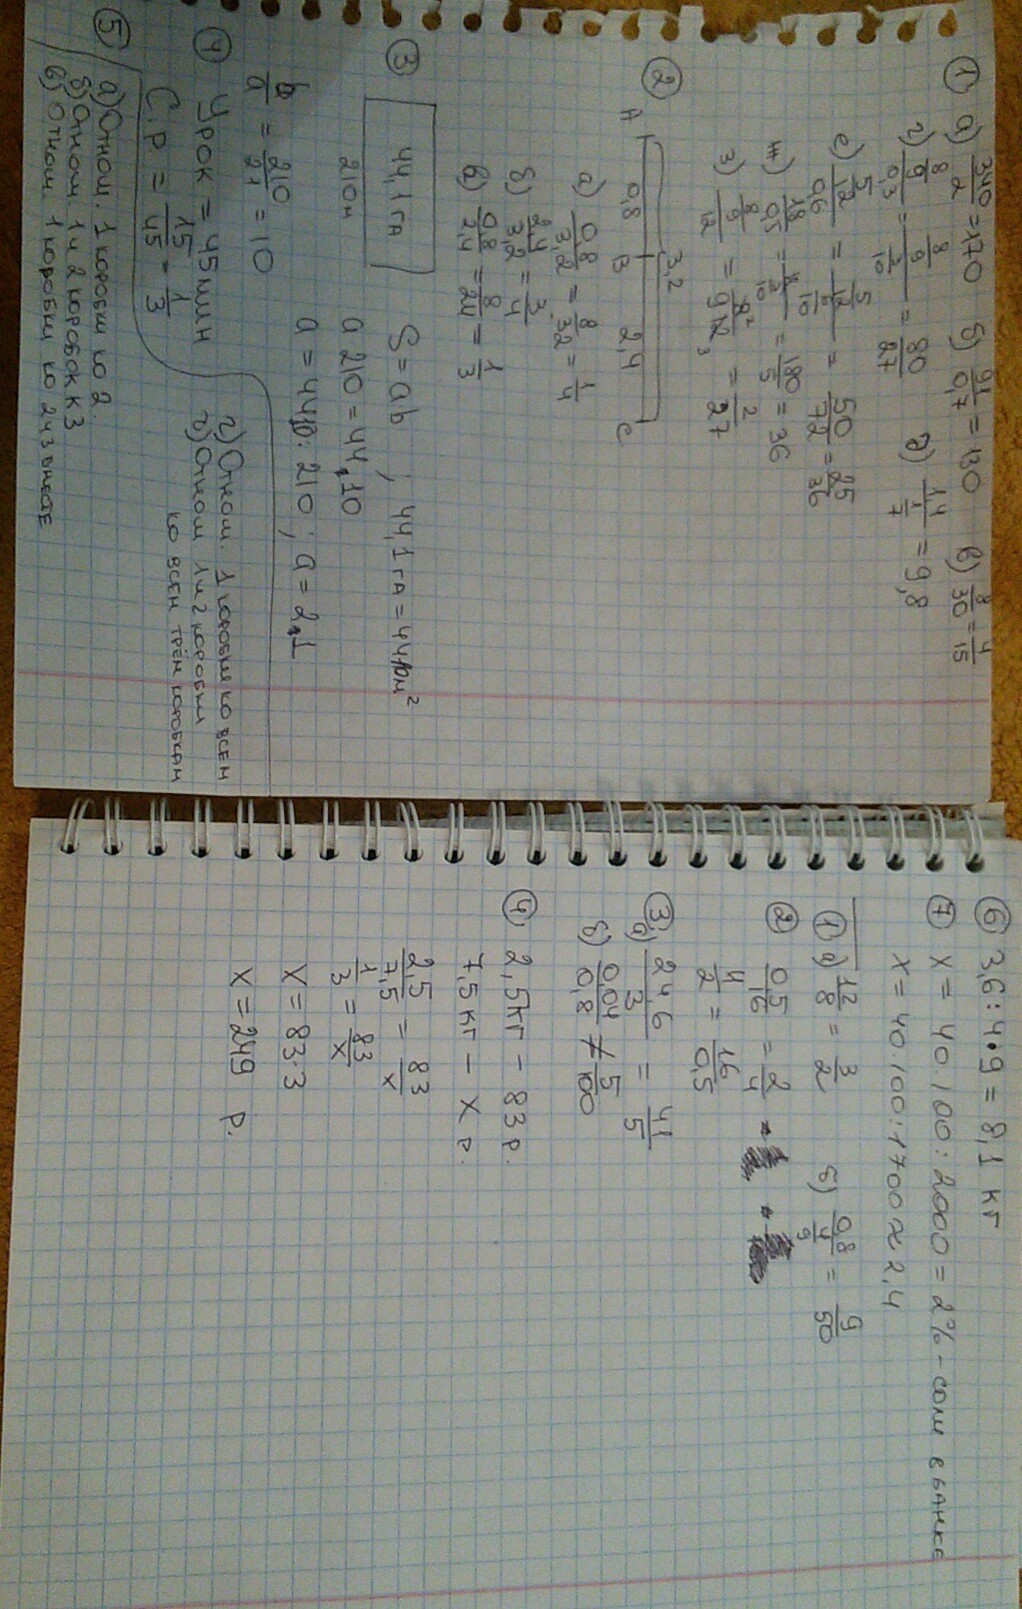 ① а) 340/2 = 170 б) 91/0,7 = 130 в) 8/30 = 4/15
г) 8/9 / 0,3 = 8/9 / 3/10 = 80/27 д) 14 / 1/7 = 9,8
е) 5/12 / 0,6 = 5/12 / 6/10 = 50/72 = 25/36
ж) 18/0,5 = 18 / 5/10 = 180/5 = 36
з) 8/9 / 12 = 8²/9·12₃ = 2/27
②
3,2
A 0,8 B 2,4 C
а) 0,8/3,2 = 8/32 = 1/4
б) 2,4/3,2 = 3/4
в) 0,8/2,4 = 8/24 = 1/3
③
44,1 га S = ab ; 44,1 га = 4410 м²
210 м a 210 = 44,10
a = 4410 : 210 ; a = 2,1
b/a = 210/21 = 10
④ Урок = 45 мин
С.Р = 15/45 = 1/3
⑤
а) Отнош. 1 коробки ко 2.
б) Отнош 1 и 2 коробок к 3
в) Отнош. 1 коробки ко 2 и 3 вместе
г) Отнош. 1 коробки ко всем
в) Отнош 1 и 2 коробки
ко всем трём коробкам
⑥ 3,6 : 4 · 9 = 8,1 кг
⑦ x = 40 · 100 : 2000 = 2% - соли в банке
x = 40 · 100 : 1700 ≈ 2,4
① а) 12/8 = 3/2 б) 0,8 / 4/9 = 9/50
② 0,5/1,6 = 2/4
4/2 = 1,6/0,5
③
а) 246/3 = 41/5
б) 0,04/0,8 ≠ 5/100
④ 2,5 кг - 83 р.
7,5 кг - x р.
2,5/7,5 = 83/x
1/3 = 83/x
x = 83·3
x = 249 р.